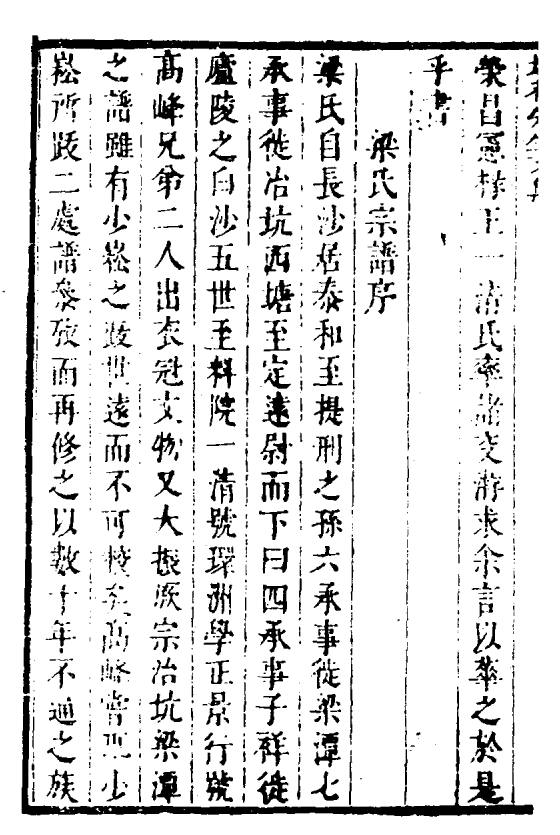 榮昌憲椽王一清氏率諸交游求余言以華之於是
乎書
梁氏宗譜序
梁氏自長沙居泰和至提刑之孫六承事徙梁潭七
承事徙冶坑西塘至定遠尉而下曰四承事子祥徙
廬陵之白沙五世至料院一清號環洲學正景行號
高峰兄弟二人出衣冠文物又大振厥宗冶坑梁潭
之譜雖有少崧之跋世遠而不可稽矣高峰嘗以少
崧所跋二處譜參攷而再修之以數十年不通之族